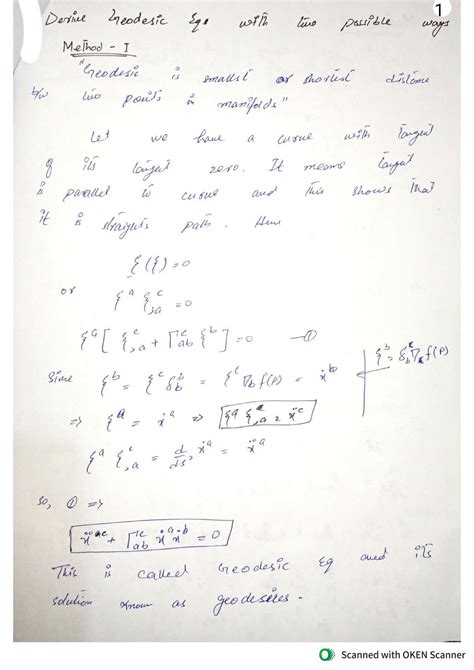 1
Derive Geodesic Eqs with two possible ways
Method - I
"Geodesic is smallest or shortest distance
b/w two points in manifolds"
Let we have a curve with tangent
of its tangent zero. It means tangent
is parallel to curve and this shows that
it is straights path. Hence
ξ(ξ) = 0
or ξ^a ξ^c_{;a} = 0
ξ^a [ ξ^c_{,a} + Γ^c_{ab} ξ^b ] = 0 —①
Since ξ^b = ξ^c δ^b_c = ξ^c ∇_b f(P) = ẋ^b
⇒ ξ^a = ẋ^a ⇒
ξ^a ξ^c_{,a} = ẍ^c
ξ^a ξ^c_{,a} = d/ds ẋ^a = ẍ^a
so, ① ⇒
+ Γ^c_{ab} ẋ^a ẋ^b = 0
This is called Geodesic Eq and its
solution known as geodesics.
Scanned with OKEN Scanner